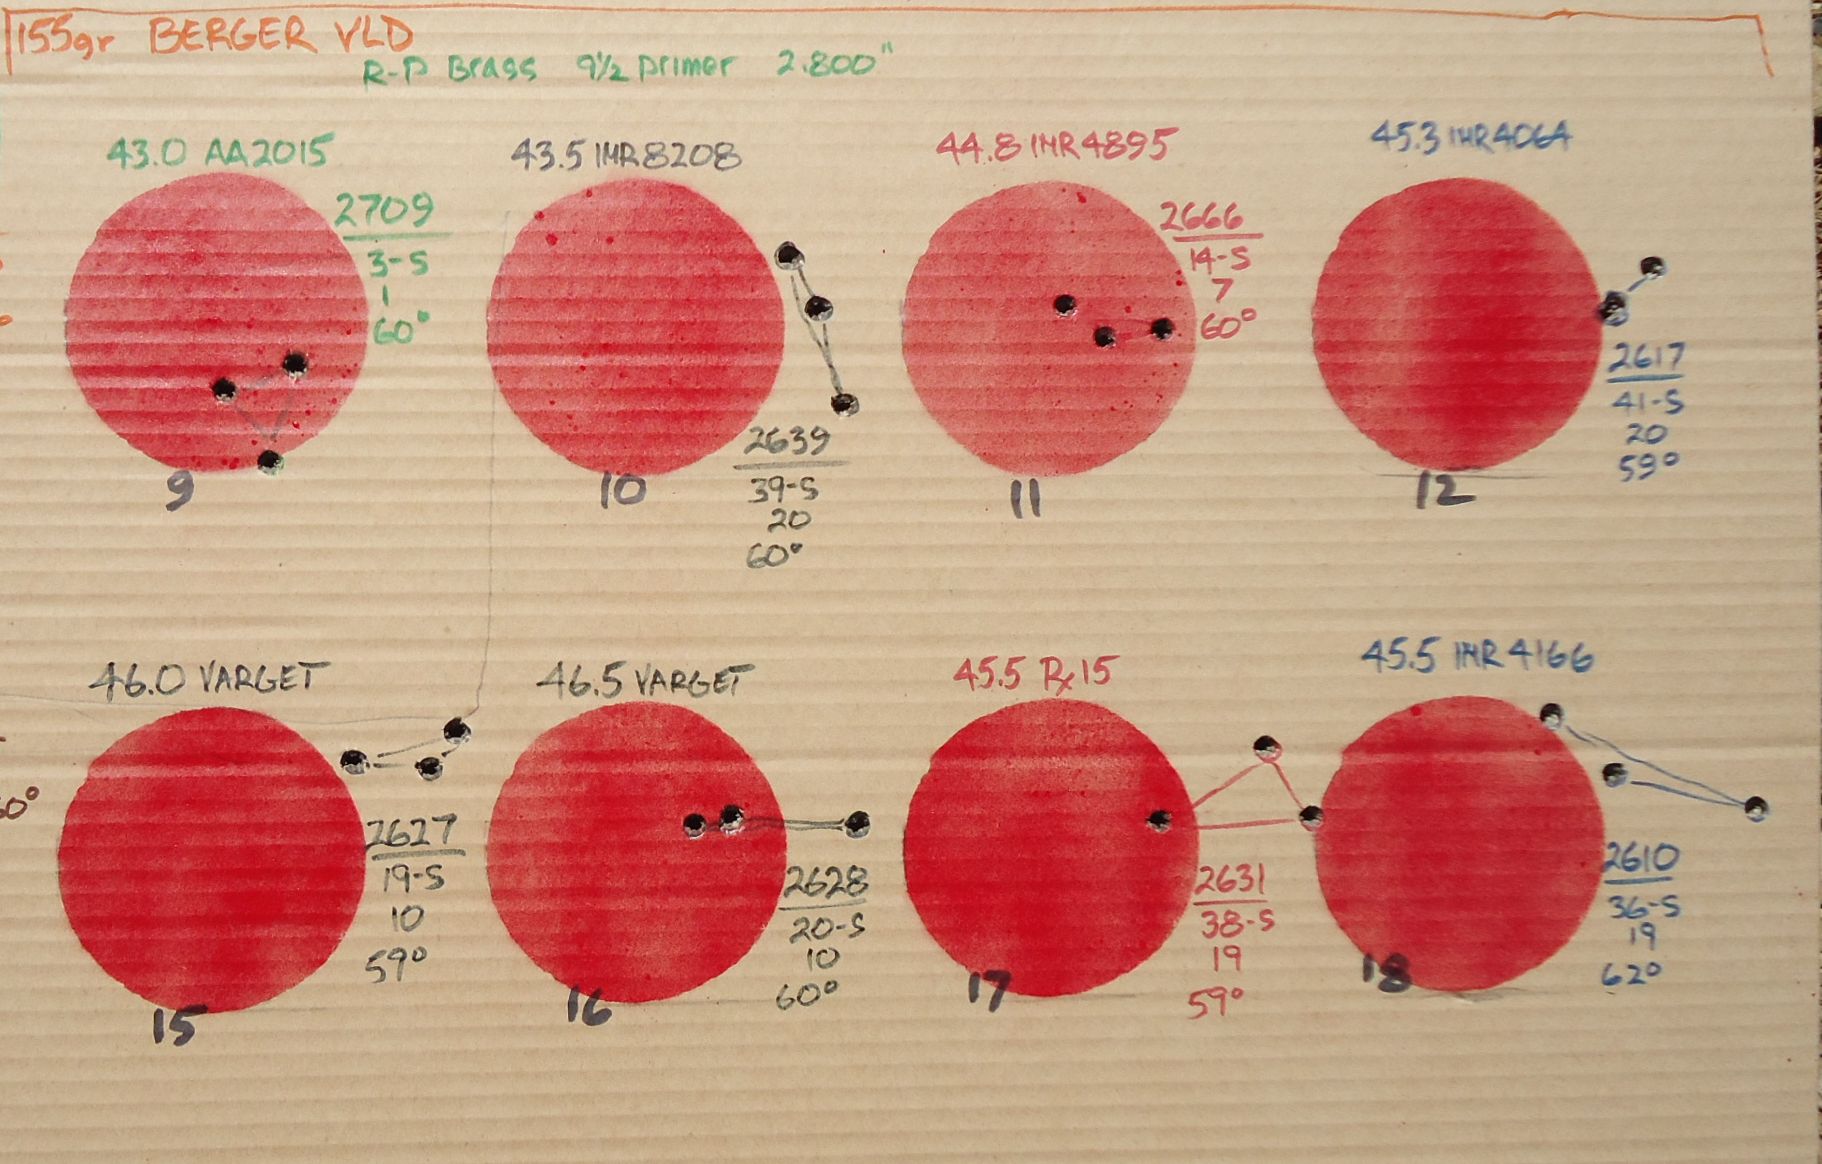 155gr BERGER VLD
R-P Brass 9½ primer 2.800"
43.0 AA2015
2709
3-S
1
60°
9
43.5 IMR8208
2639
39-S
20
60°
10
44.8 IMR4895
2666
14-S
7
60°
11
45.3 IMR4064
2617
41-S
20
59°
12
46.0 VARGET
2627
19-S
10
59°
15
46.5 VARGET
2628
20-S
10
60°
16
45.5 Rx15
2631
38-S
19
59°
17
45.5 IMR4166
2610
36-S
19
62°
18